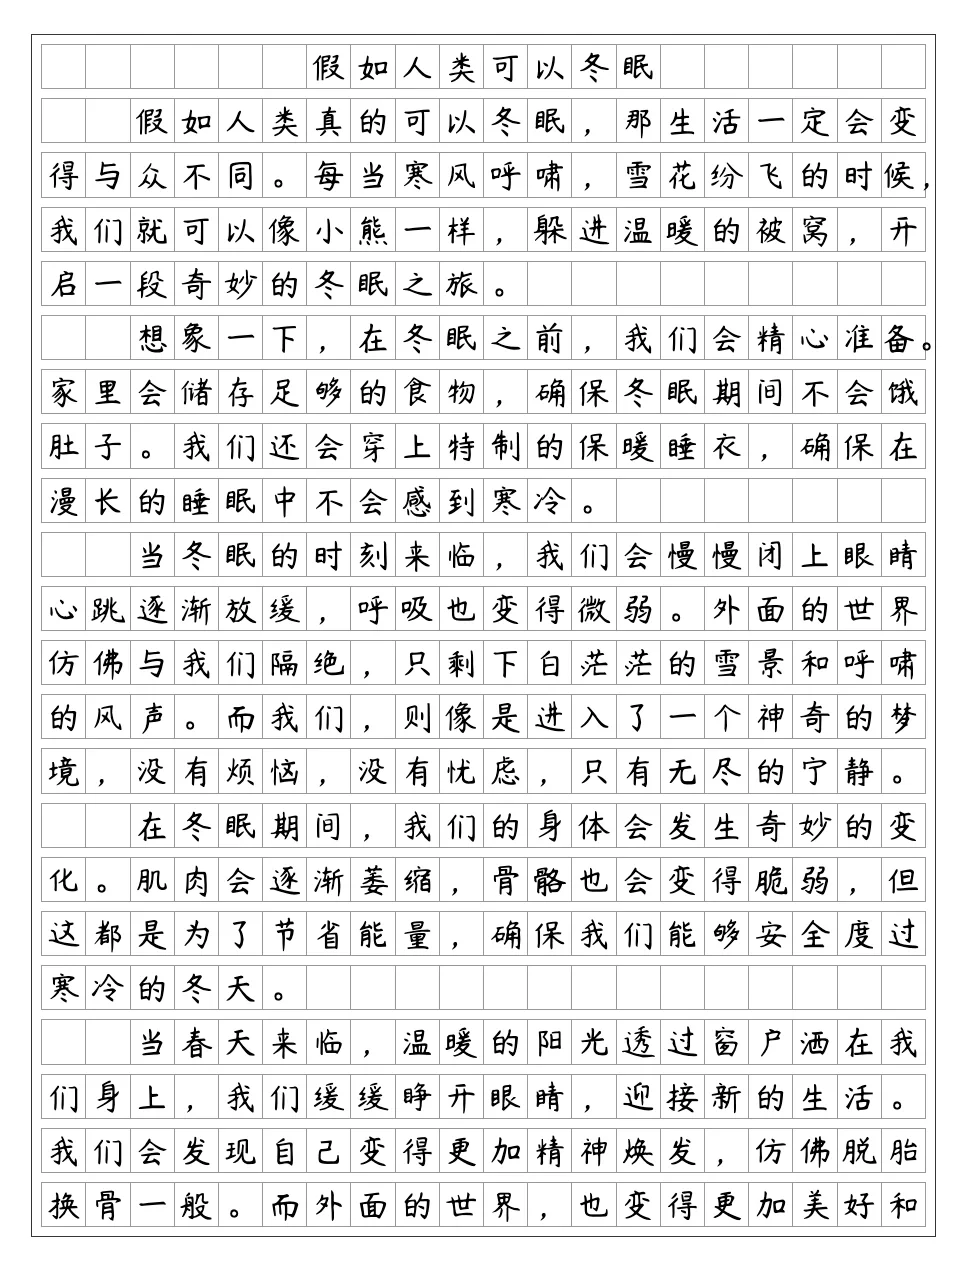 假如人类可以冬眠
假如人类真的可以冬眠，那生活一定会变
得与众不同。每当寒风呼啸，雪花纷飞的时候，
我们就可以像小熊一样，躲进温暖的被窝，开
启一段奇妙的冬眠之旅。
想象一下，在冬眠之前，我们会精心准备。
家里会储存足够的食物，确保冬眠期间不会饿
肚子。我们还会穿上特制的保暖睡衣，确保在
漫长的睡眠中不会感到寒冷。
当冬眠的时刻来临，我们会慢慢闭上眼睛
心跳逐渐放缓，呼吸也变得微弱。外面的世界
仿佛与我们隔绝，只剩下白茫茫的雪景和呼啸
的风声。而我们，则像是进入了一个神奇的梦
境，没有烦恼，没有忧虑，只有无尽的宁静。
在冬眠期间，我们的身体会发生奇妙的变
化。肌肉会逐渐萎缩，骨骼也会变得脆弱，但
这都是为了节省能量，确保我们能够安全度过
寒冷的冬天。
当春天来临，温暖的阳光透过窗户洒在我
们身上，我们缓缓睁开眼睛，迎接新的生活。
我们会发现自己变得更加精神焕发，仿佛脱胎
换骨一般。而外面的世界，也变得更加美好和